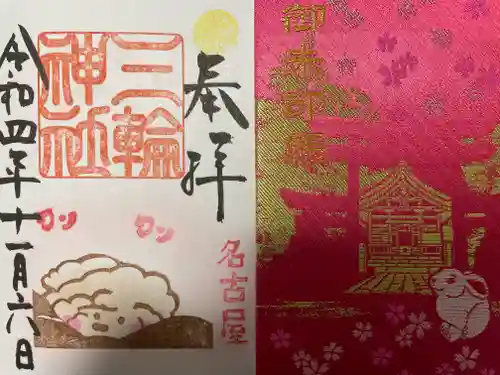 奉拝
三輪
神社
ワン
ワン
名古屋
令和四年十一月六日
御朱印帳